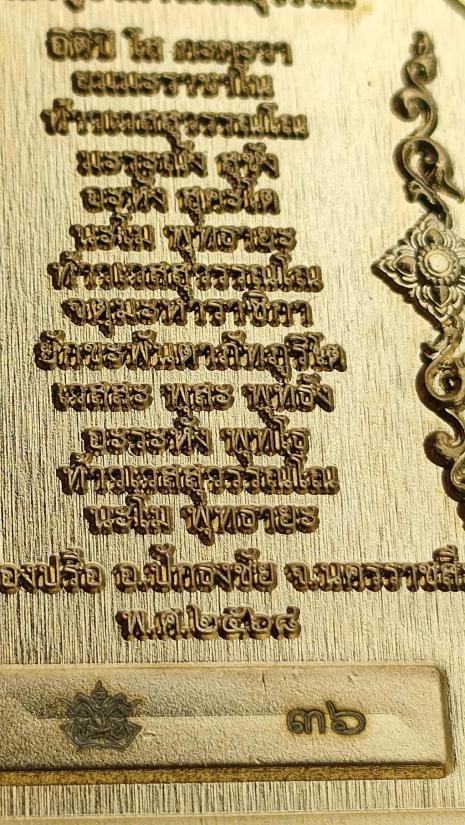 อิติปิ โส ภะคะวา
ยมมะราชาโน
ท้าวเวสสุวรรณโณ
มรณัง สุขัง
อะหัง สุคะโต
นะโม พุทธายะ
ท้าวเวสสุวรรณโณ
จตุมะหาราชิกา
ยักขะพันตาภัทภูริโต
เวสสะ พุสะ พุทธัง
อะระหัง พุทโธ
ท้าวเวสสุวรรณโณ
นะโม พุทธายะ
อ.ปักธงชัย
พ.ศ.๒๕๖๘
๓๖